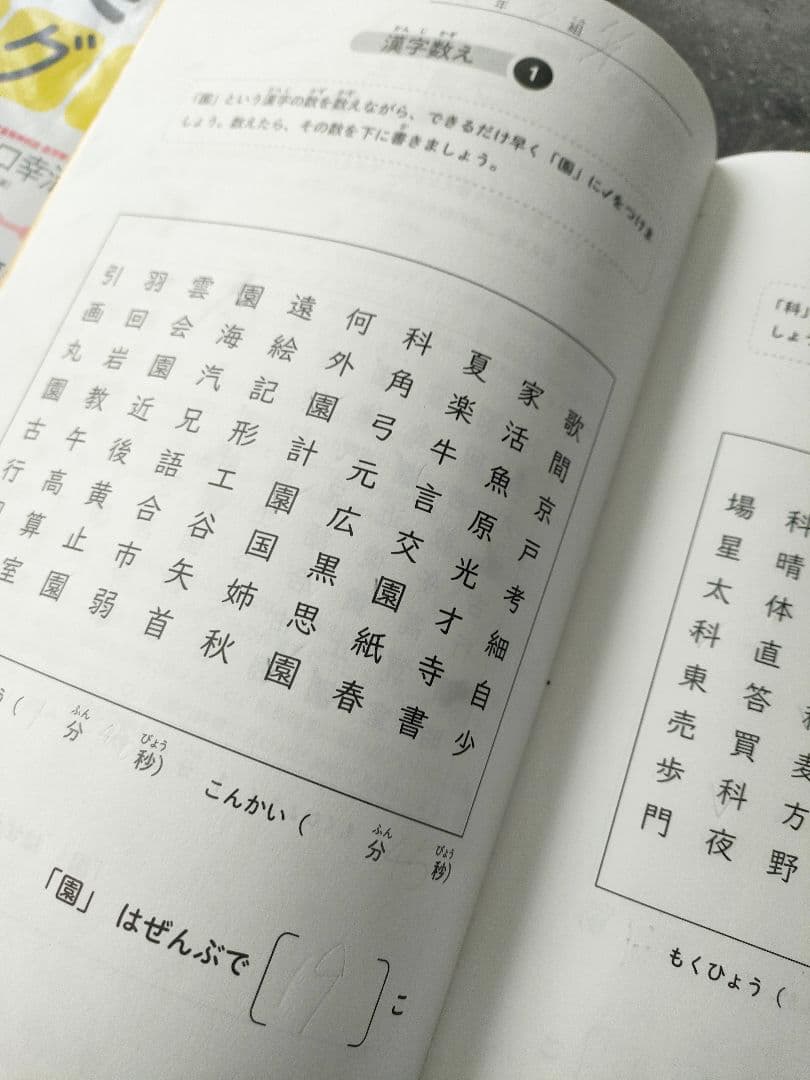 グ
口幸
年 組
かん じ かぞ
漢字数え
1
「園」という漢字の数を数えながら、できるだけ早く「園」に✓をつけま
しょう。数えたら、その数を下に書きましょう。
引 羽 雲 園 遠 何 科 夏 家 歌
画 回 会 海 絵 外 角 楽 活 間
丸 岩 園 汽 記 園 弓 牛 魚 京
園 教 近 兄 形 計 元 言 原 戸
古 午 後 語 工 園 広 交 光 考
行 高 黄 合 谷 国 黒 園 才 細
算 止 市 矢 姉 思 紙 寺 自
室 園 弱 首 秋 園 春 書 少
う( 分 秒) こんかい( 分 秒)
ふん びょう ふん びょう
「園」はぜんぶで[19]こ
「科」
しょう
場 科
星 晴
太 体
科 直
東 答
売 買 麦
歩 科 方
門 夜 野
もくひょう(